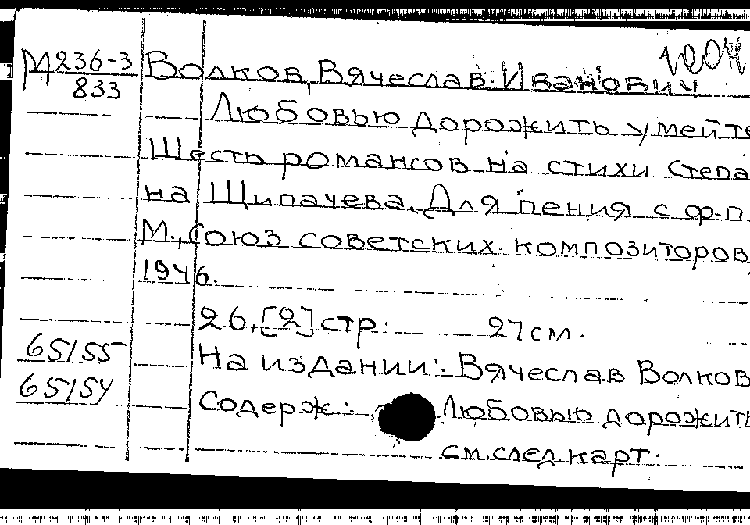 1204
М 236-3
833
Волков, Вячеслав Иванович
Любовью дорожить умейте
Шесть романсов на стихи Степа
на Щипачева. Для пения с ф.-п.
М., Союз советских композиторов
1946.
26, [2] стр. 27 см.
65155
На издании: Вячеслав Волков
65154
Содерж: Любовью дорожить
см. след. карт.